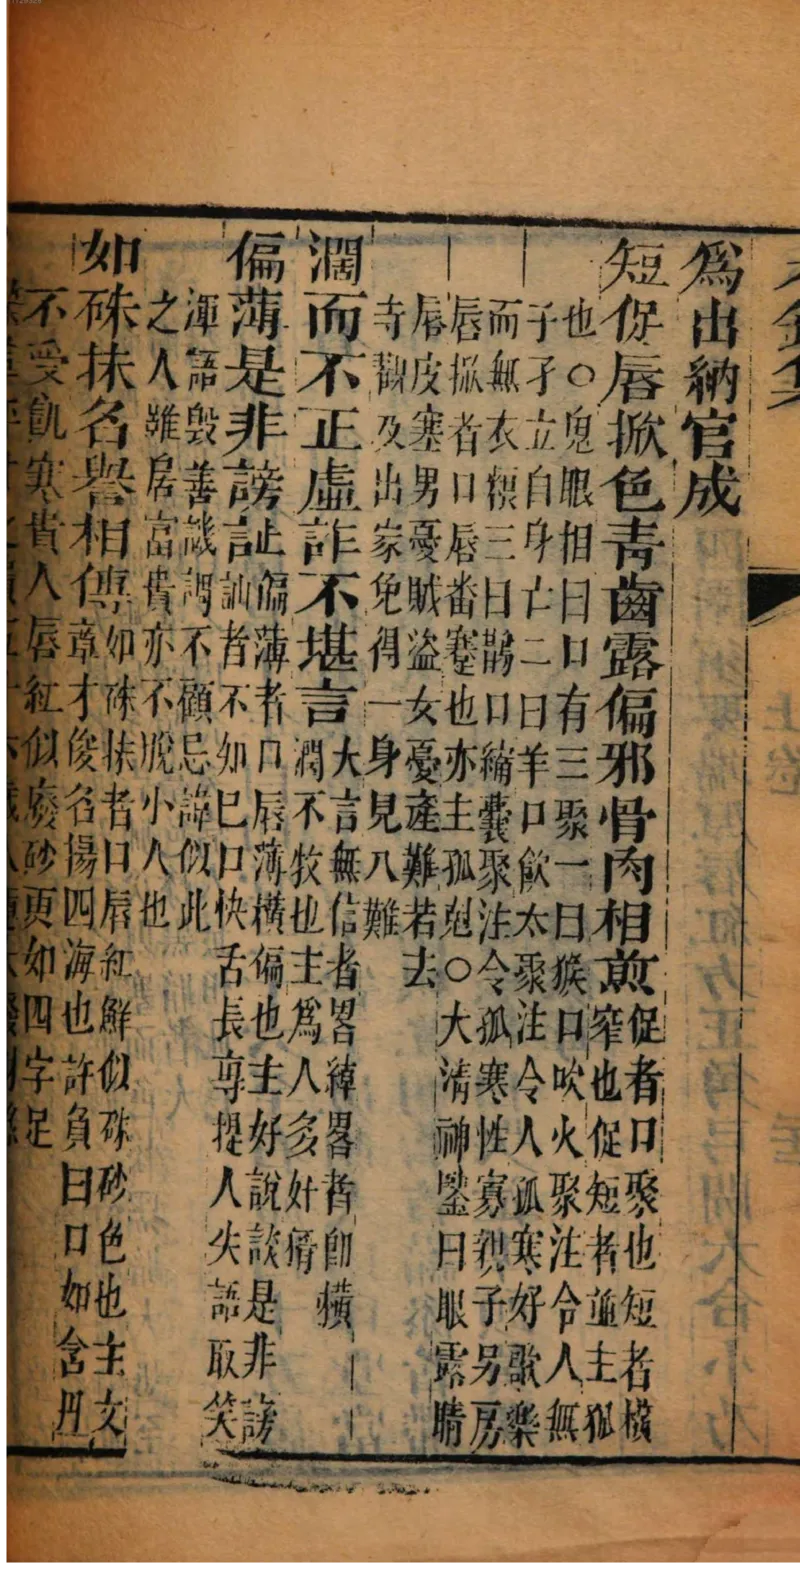 為出納官成
短促唇掀色青齒露偏邪骨肉相煎促者口聚也短者橫
窄也促短者並主孤
也○鬼眼相曰口有三聚一曰猴口吹火聚注令人無
子孑立自身亡二曰羊口飲太聚注令人孤寒好歌樂
而無衣糧三曰鵲口縮囊聚注令孤寒性寡親子另房
唇掀者口唇番蹇也亦主孤尅○大清神鑒曰眼露睛
唇皮寒男憂賊盜女憂產難若去
寺觀及出家免得一身見八難
濶而不正虛詐不堪言大言無信者畧綽畧者卽橫
濶不牧也主為人多奸猾
偏薄是非謗訕偏薄者口唇薄橫偏也主好說談是非謗
訕者不如巳口快舌長專提人失語取笑
渾語毀善譏謂不顧忌諱似此
之人雖居富貴亦不脫小人也
如硃抹名譽相傳如硃抹者口唇紅鮮似硃砂色也主女
章才俊名揚四海也許負曰口如含丹
不受飢寒貴人唇紅似砂更如四字足